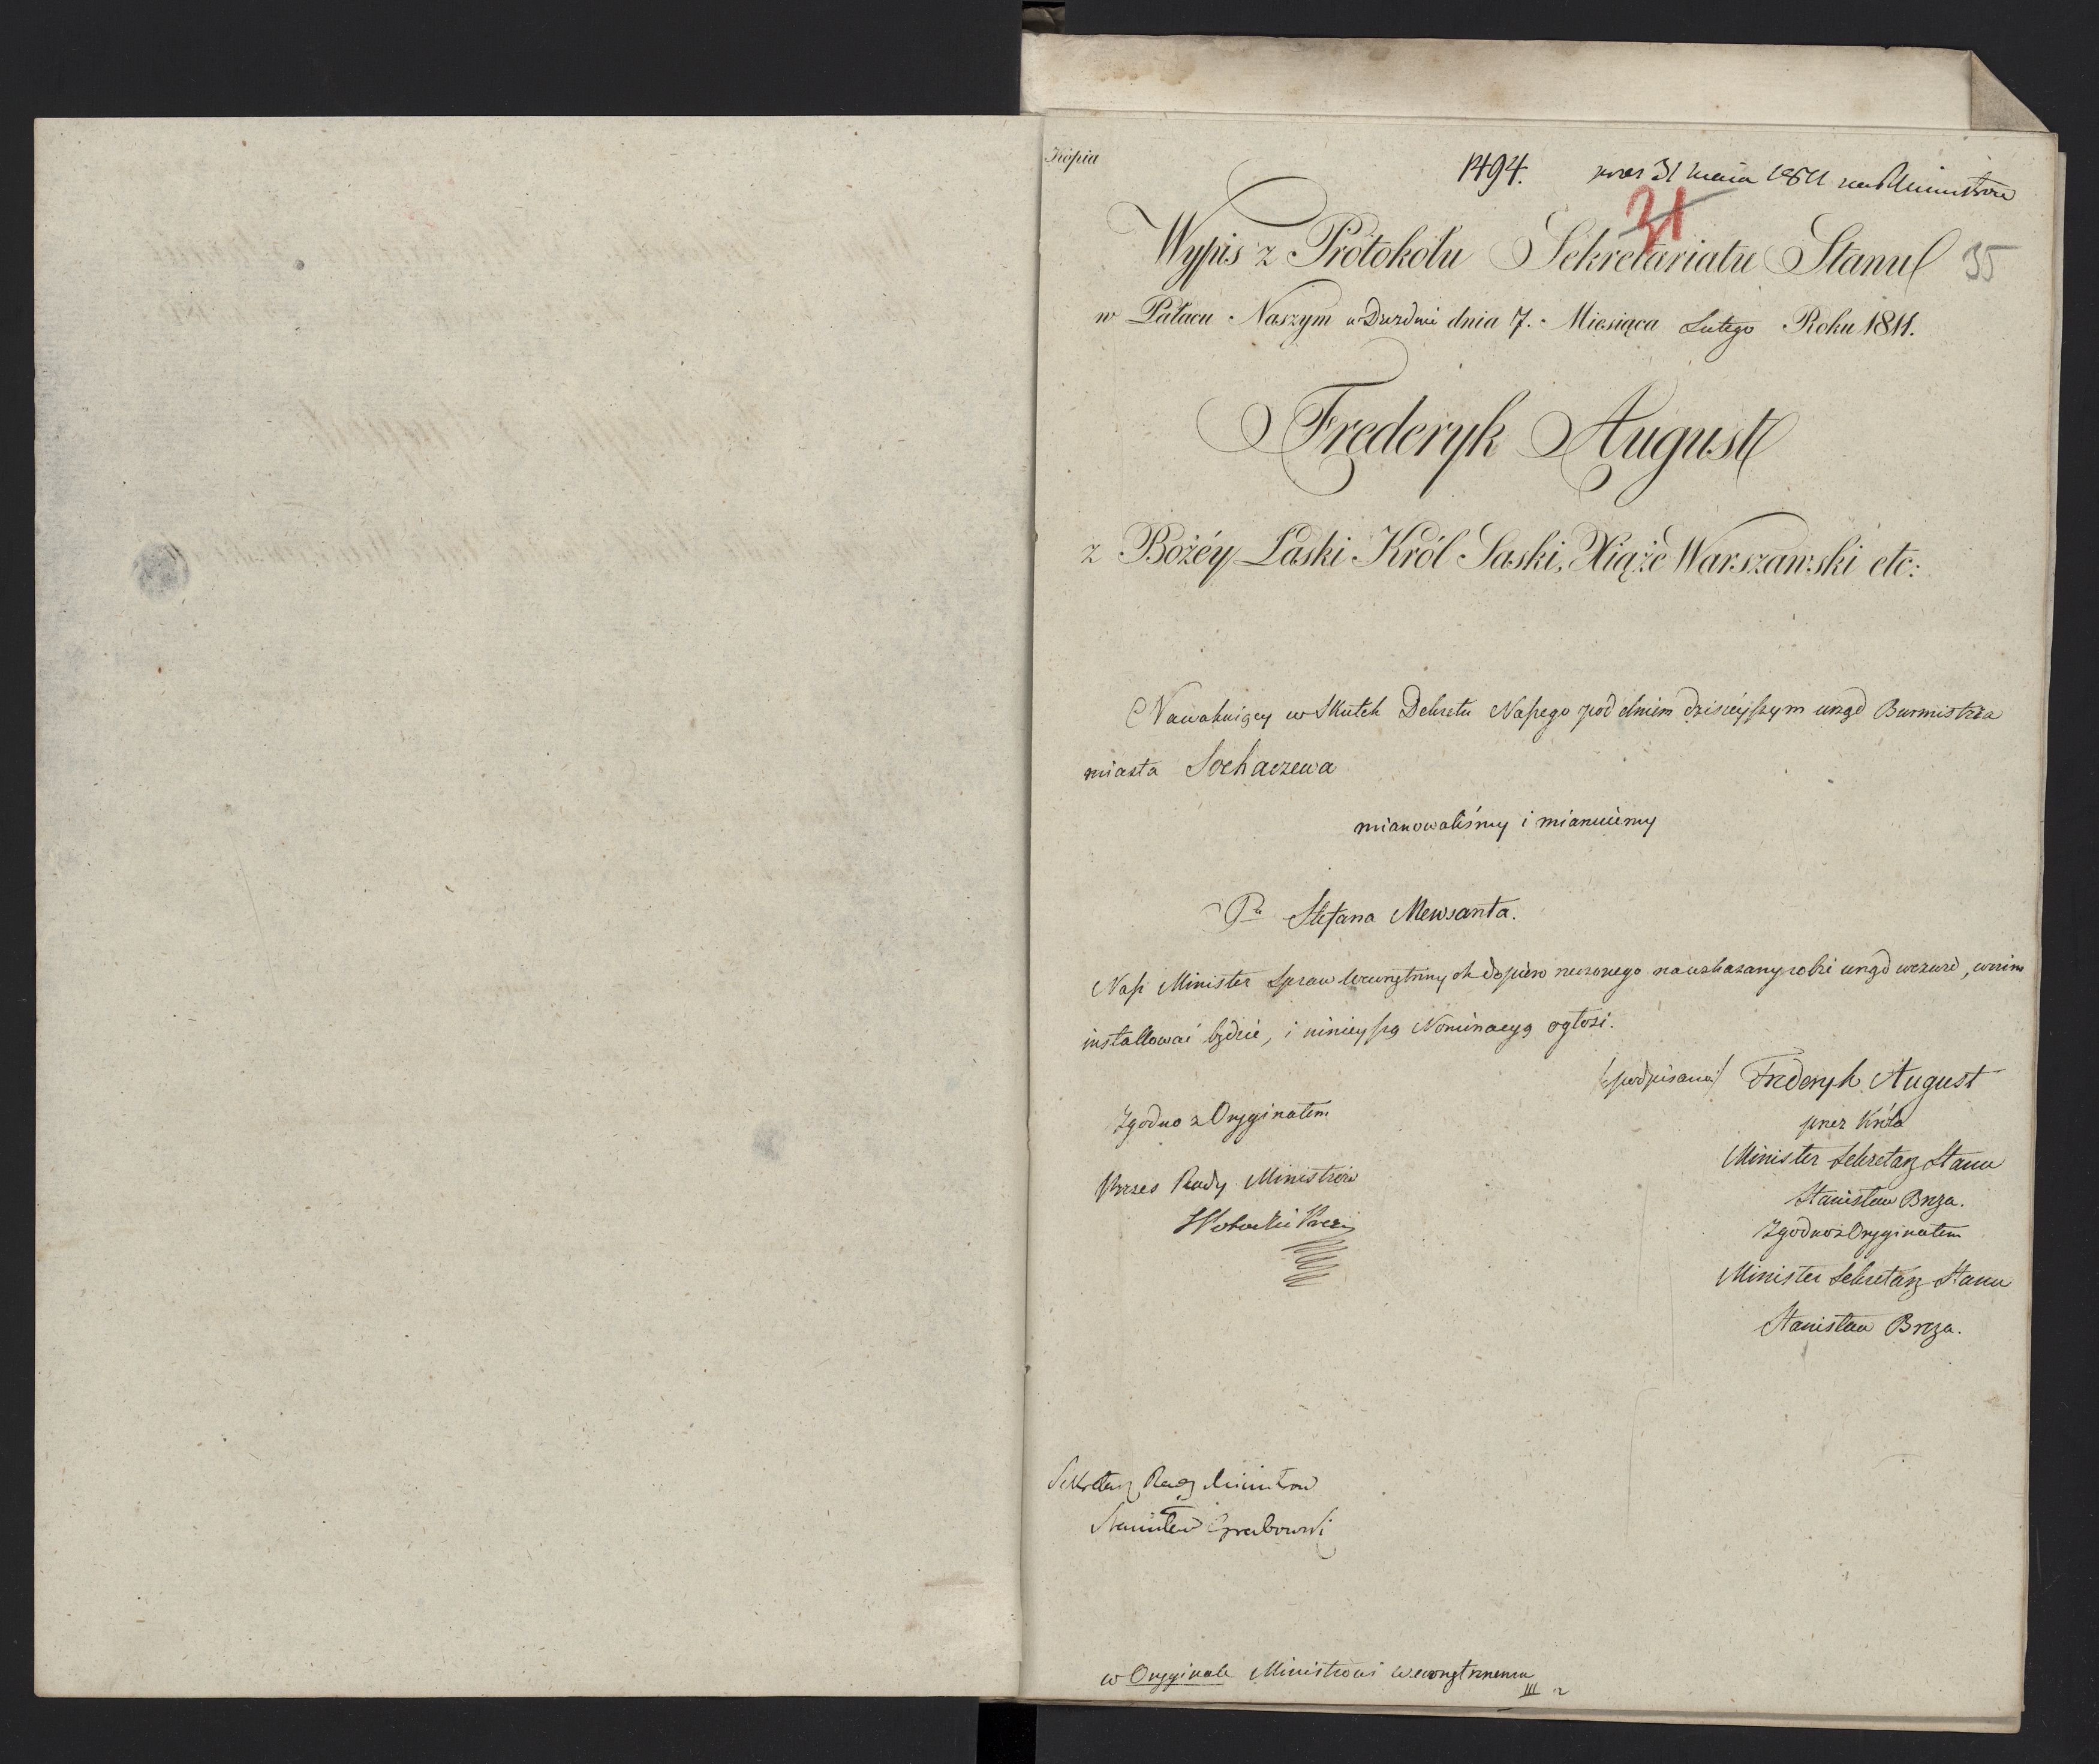 Kopia
1494. 31 maia 1811
31
Wypis z Protokołu Sekretariatu Stanu 35
w Pałacu Naszym w Dreznie dnia 7. Miesiąca Lutego Roku 1811.
Frederyk August
z Bożéy Łaski Król Saski, Xiąże Warszawski etc:
Nawakuiący w Skutek Dekretu Naszego pod dniem dzisieyszym urząd Burmistrza
miasta Sochaczewa
mianowaliśmy i mianuiemy
Pa Stefana Mewsanta.
Nasz Minister Spraw Wewnętrznych dopiero rzeczonego na wskazany sobie urząd wezwać, w nim
installować będzie, i ninieyszą Nominacyą ogłosi.
(podpisano) Frederyk August
przez Króla
Minister Sekretarz Stanu
Stanisław Breza.
Zgodno z Oryginałem
Minister Sekretarz Stanu
Stanisław Breza.
Zgodno z Oryginałem
Prezes Rady Ministrów
Sekretarz Rady Ministrow
Stanisław Grabowski
w Oryginale Ministrowi Wewnętrznemu
III